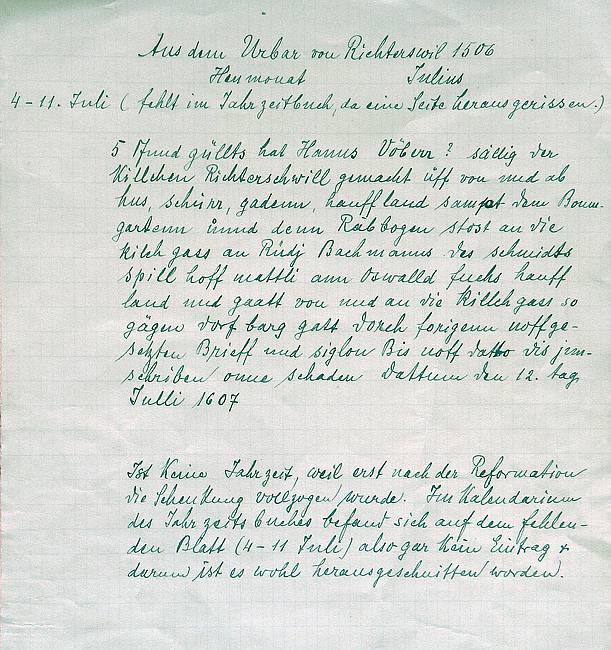 Aus dem Urbar von Richterswil 1506
Heumonat Julius
4-11. Juli (fehlt im Jahrzeitbuch, da eine Seite herausgerissen.)
5 Pfund güllts hat Hanns Vöberr? sällig der
Killchen Richterschwill gemacht uff von und ab
hus, schürr, gadenn, hauffland sampt dem Boum-
gartenn unnd denn Räbbogen stost an die
kilch gass an Rüdj Bachmanns des schmidts
spill hoff mattli ann Oswalld fuchs hauff
land und gaatt von und an die killchgass so
gägen dorf barg gatt dorch forigenn uoffge-
setzten Brieff und siglon Bis uoff datto dis jnn-
schriben onne schaden Dattum den 12. tag
Julli 1607
Ist Keine Jahrzeit, weil erst nach der Reformation
die Schenkung vollzogen wurde. Im Kalendarium
des Jahrzeitsbuches befand sich auf dem fehlen-
den Blatt (4-11 Juli) also gar Kein Eintrag +
darum ist es wohl herausgeschnitten worden.